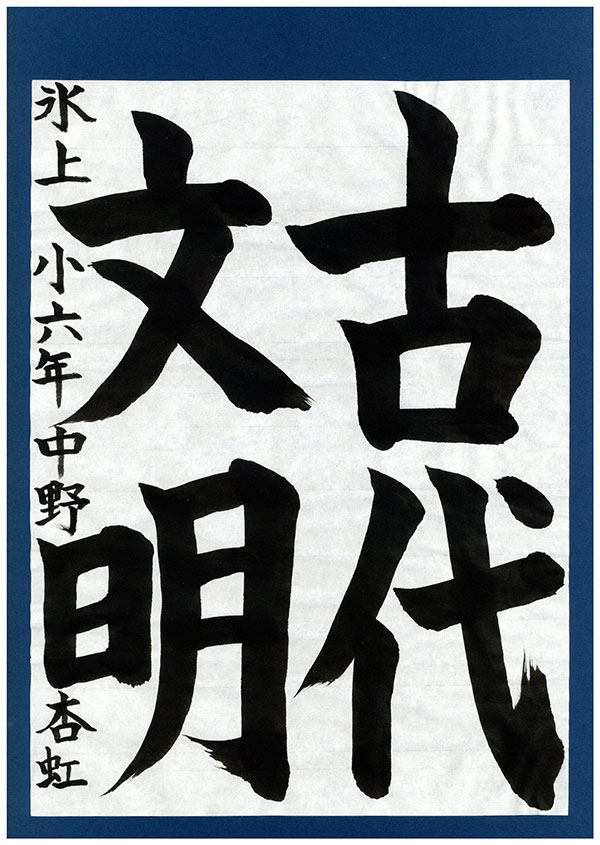 古代
文明
氷上小六年中野杏虹